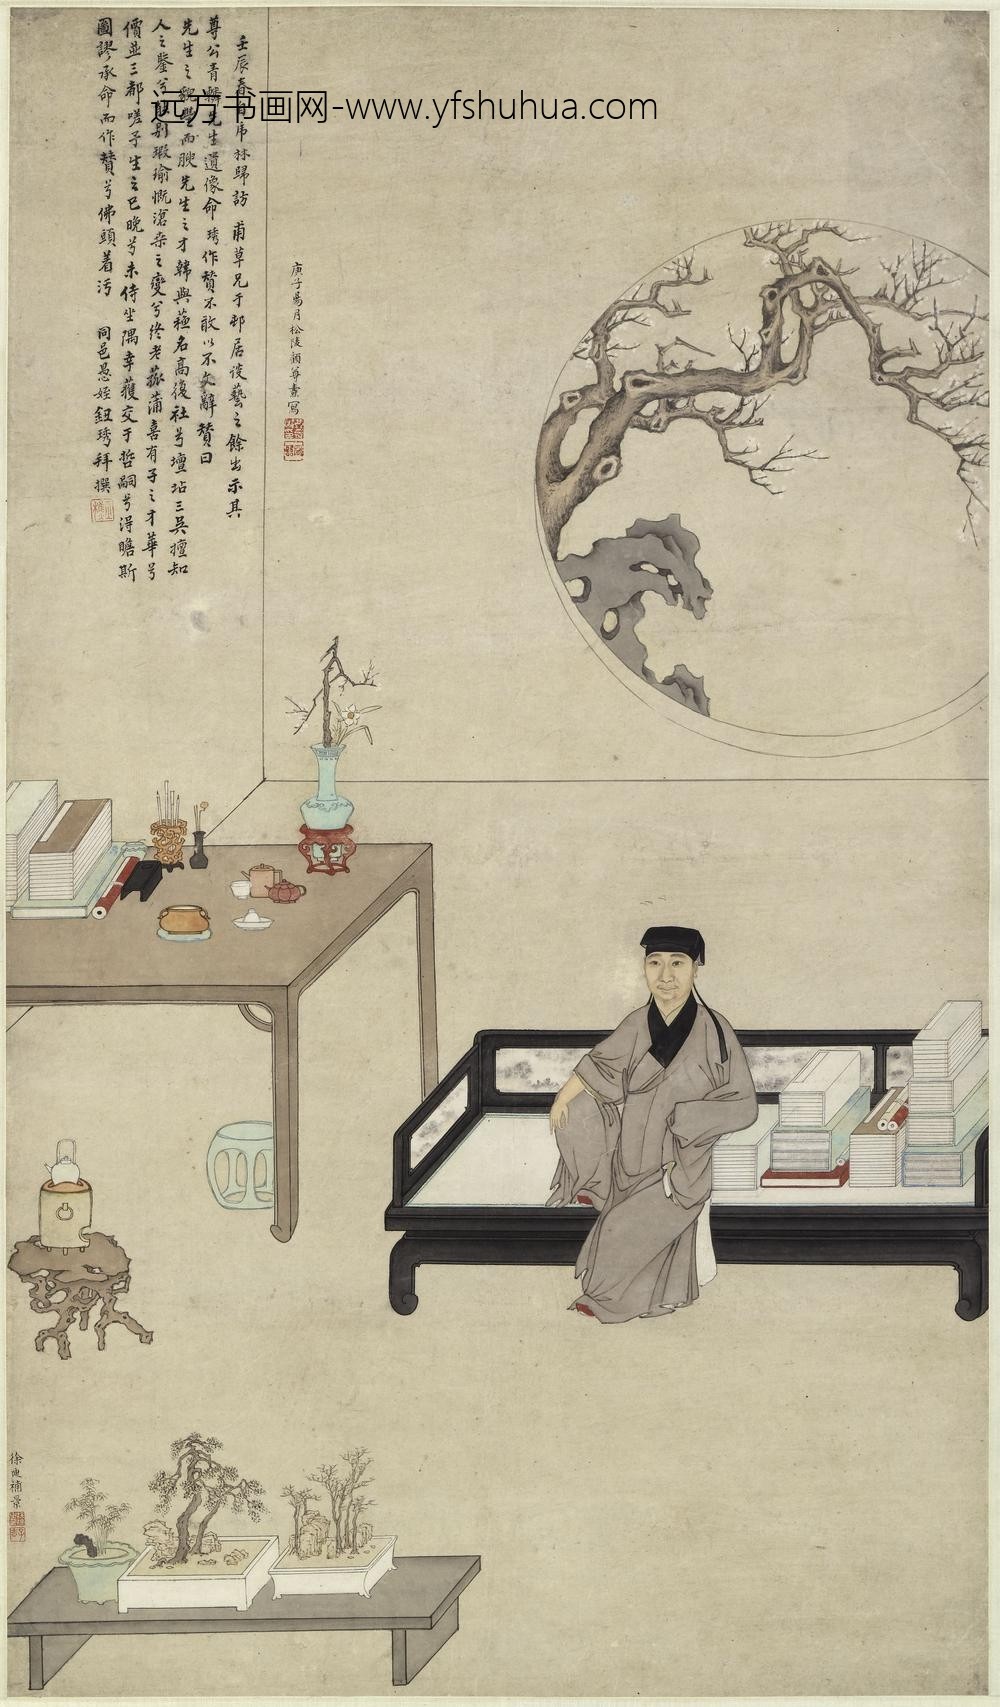 远方书画网-www.yfshuhua.com
壬辰春自虎林歸訪
甫草兄于邨居談藝之餘出示其
尊公青麟先生遺像命琇作贊不敢以不文辭贊曰
先生之貌豐而腴先生之才韓與蘇名高復社兮壇坫三吳擅知
人之鑒兮能別瑕瑜慨滄桑之變兮終老菰蒲喜有子之才華兮
價並三都嗟予生之已晚兮未侍坐隅幸獲交于哲嗣兮得瞻斯
圖謬承命而作贊兮佛頭着污
同邑愚姪鈕琇拜撰
庚子易月松陵顧尊燾寫
徐 補景